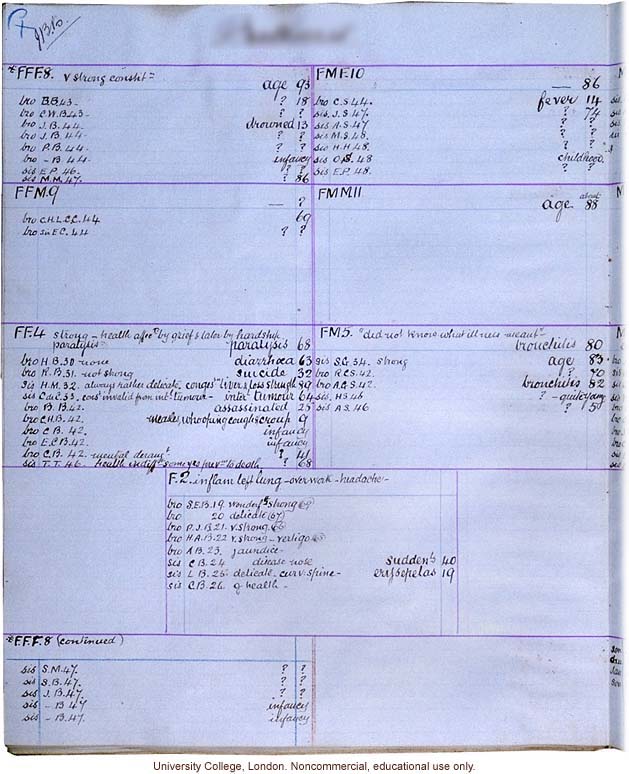 FFF.8. v strong constn
age 93
bro B.B.43. ? 18
bro C.W.B.43. ? ?
bro J.B.44. drowned 13
bro J.B.44. ? ?
bro P.B.44. ? ?
bro - B.44. infancy
sis E.P.46. ? ?
sis M.M.47. ? 86
FMF.10
— 86
bro C.S.44. fever 14
sis J.S.47. ? 74
sis A.S.47 ? ?
sis M.S.48. ? ?
sis H.H.48 ? ?
sis O.S.48 childhood.
sis E.P.48. ? ?
FFM.9
— ?
bro C.H.L.C.C.44 69
bro E.C.44 ? ?
FMM.11
about
age 88
FF.4 strong - health affd by grief & later by hardship
paralysis paralysis 68
bro H.B.30 none diarrhœa 63
bro R.B.31. not strong suicide 32
sis H.M.32. always rather delicate. conges liver & loss strength
sis C.33. consd invalid from intl tumour - inter tumour 64
bro B.B.42. assassinated 25
bro C.H.B.42. measles, whooping cough & croup 9
bro C.B.42. infancy
bro E.C.B.42. infancy
bro C.B.42. mental derangt ? 41
sis T.T.46. health indifft some yrs prevs to death ? 68
FM.5. "did not know what illness meant"
bronchitis 80
sis S.G.34. strong age 83
bro R.C.S.42. ?
bro A.G.S.42. bronchitis 82
sis H.S.46 ? - quite young
sis A.S.46 ?
F.2. inflam left lung - overwork - headache -
bro S.E.B.19. wonderfy strong
bro 20 delicate (67)
bro P.J.B.21. v. strong.
bro H.A.B.22 v. strong - vertigo
bro A.B.23. jaundice -
sis C.B.24. disease nose suddenly 40
sis L.B.25. delicate - curv. spine - erysipelas 19
sis C.B.26. g health -
FFF.8 (continued)
sis S.M.47. ? ?
sis S.B.47. ? ?
sis J.B.47. ? ?
sis - B.47 infancy
sis - B.47. infancy
University College, London. Noncommercial, educational use only.